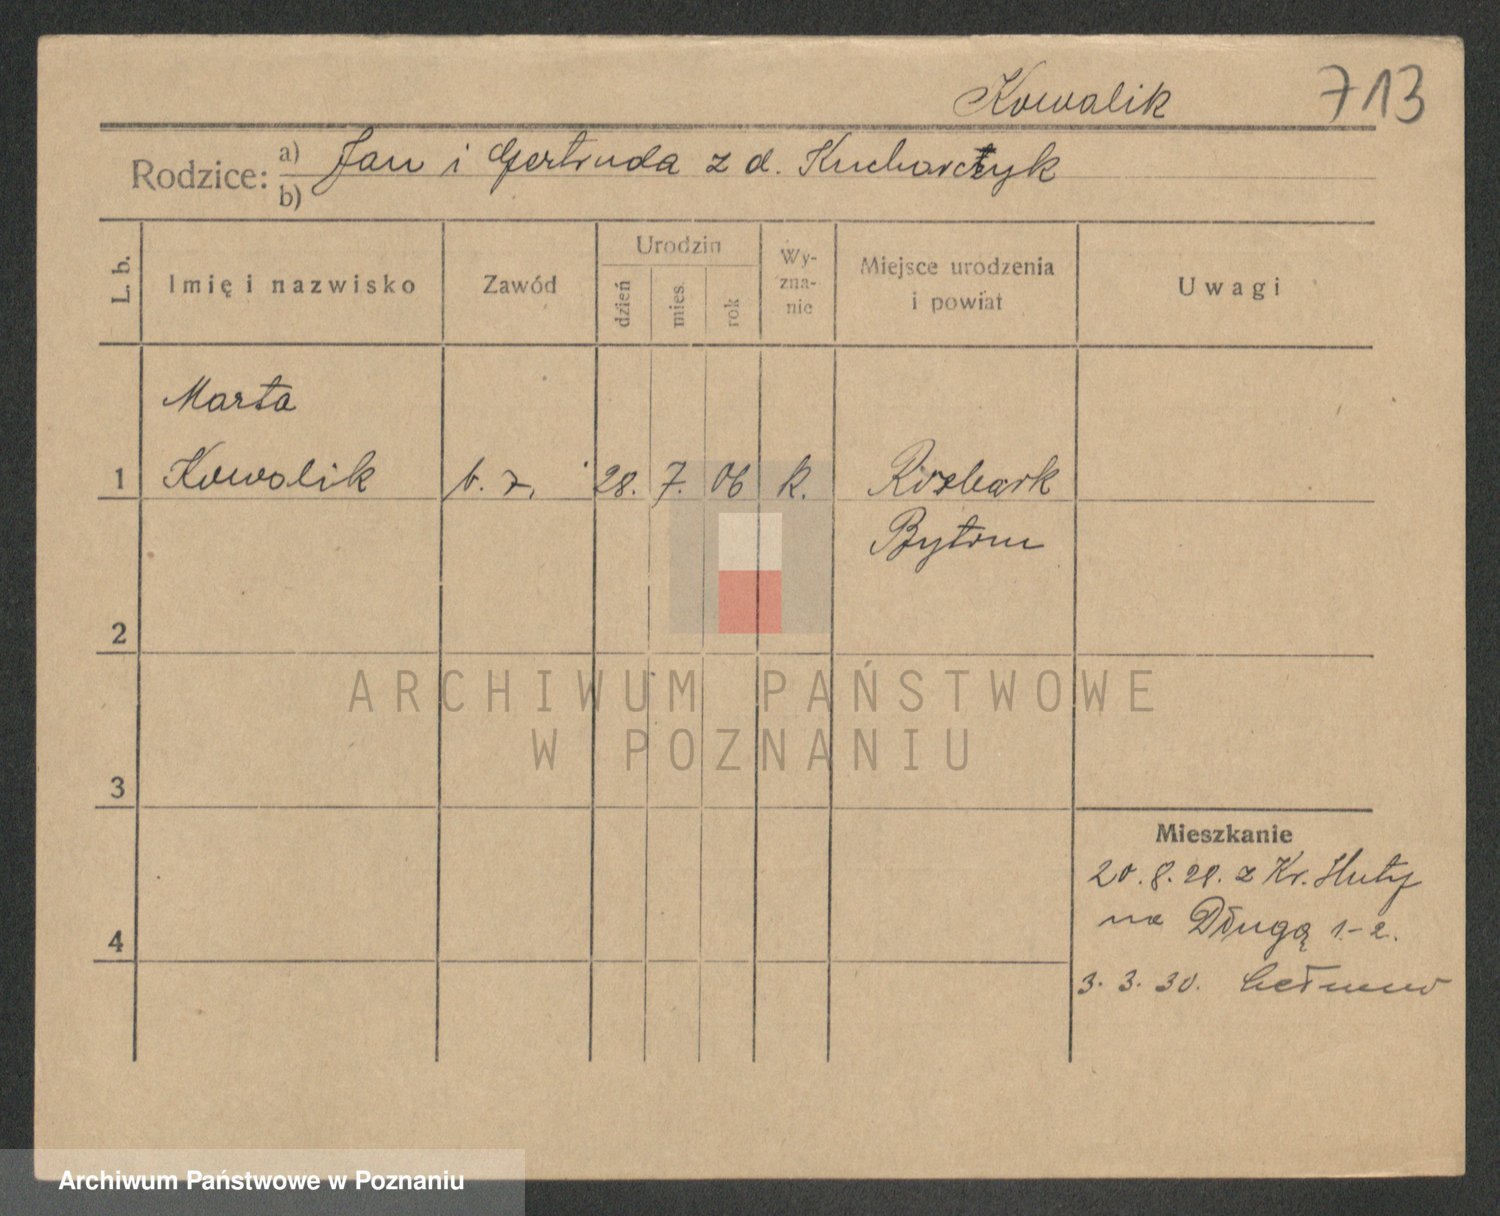 Kowalik 713
Rodzice: a) Jan i Gertruda z d. Kucharczyk
b)
L. b. Imię i nazwisko Zawód Urodzin dzień mies. rok Wyznanie Miejsce urodzenia i powiat Uwagi
Marta
1 Kowalik b. z. 28. 7. 06 k. Rozbark
Bytom
2
ARCHIWUM PAŃSTWOWE
W POZNANIU
3
Mieszkanie
20.8.29. z Kr. Huty
4 na Długą 1-2.
3. 3. 30.
Archiwum Państwowe w Poznaniu